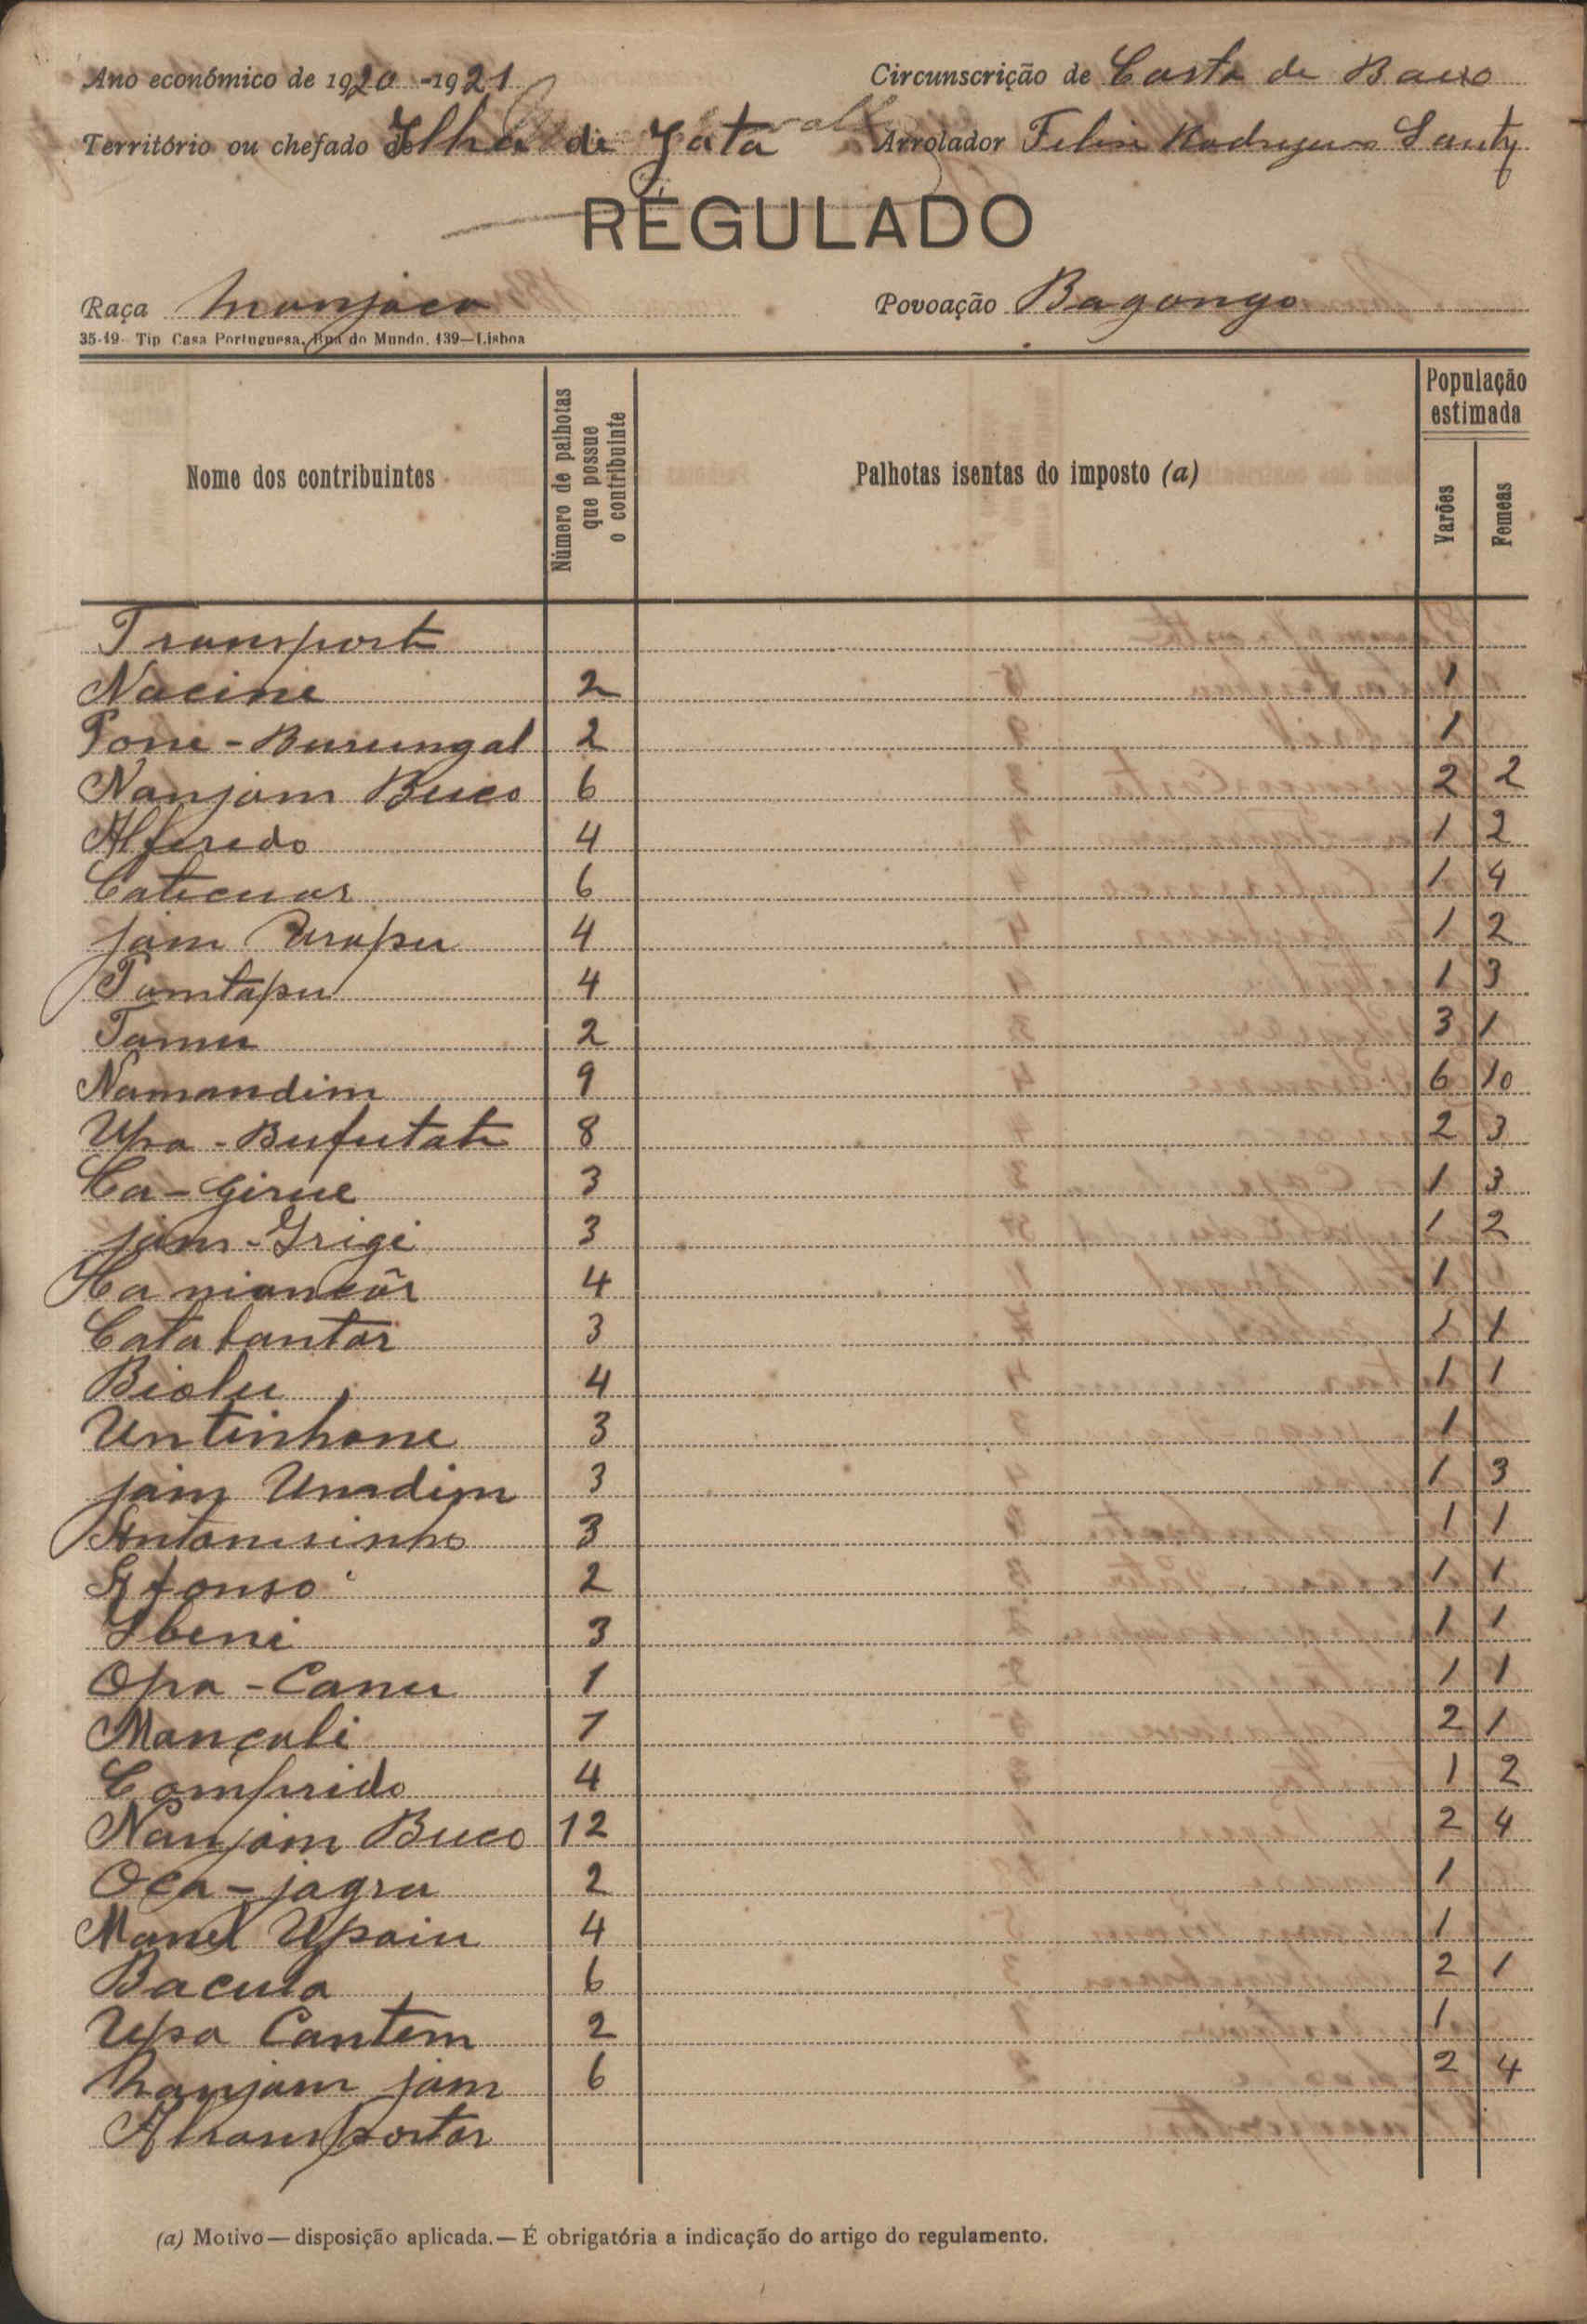 Ano económico de 1920-1921 Circunscrição de Costa de Baixo
Território ou chefado de Ilha de Jata Arrolador Felix Rodrigues
REGULADO
Raça Manjaco Povoação Bagongo
35-19- Tip Casa Portuguesa, Rua do Mundo, 139—Lisboa
Nome dos contribuintes Número de palhotas que possue o contribuinte Palhotas isentas do imposto (a) População estimada Varões Femeas
Transporte
Nacine 2 1
Pone - Burungal 2 1
Nanjam Buco 6 2 2
Alferedo 4 1 2
Catecuar 6 1 4
jam Urapu 4 1 2
Pamtapu 4 1 3
Tamu 2 3 1
Namandim 9 6 10
Upa - Bufutate 8 2 3
Ca - Girue 3 1 3
jam - Grigi 3 1 2
Ca niancõr 4 1
Catabantar 3 1 1
Biolu 4 1 1
Untinhane 3 1
jam Unadim 3 1 3
Antonisinho 3 1 1
Afonso 2 1 1
Ibeni 3 1 1
Opa - Canu 1 1 1
Mançali 7 2 1
Comprido 4 1 2
Nanjam Buco 12 2 4
Oca - jagra 2 1
Manel Upain 4 1
Bacula 6 2 1
Upa Cantem 2 1
Nanjam jam 6 2 4
A transportar
(a) Motivo—disposição aplicada.—É obrigatória a indicação do artigo do regulamento.